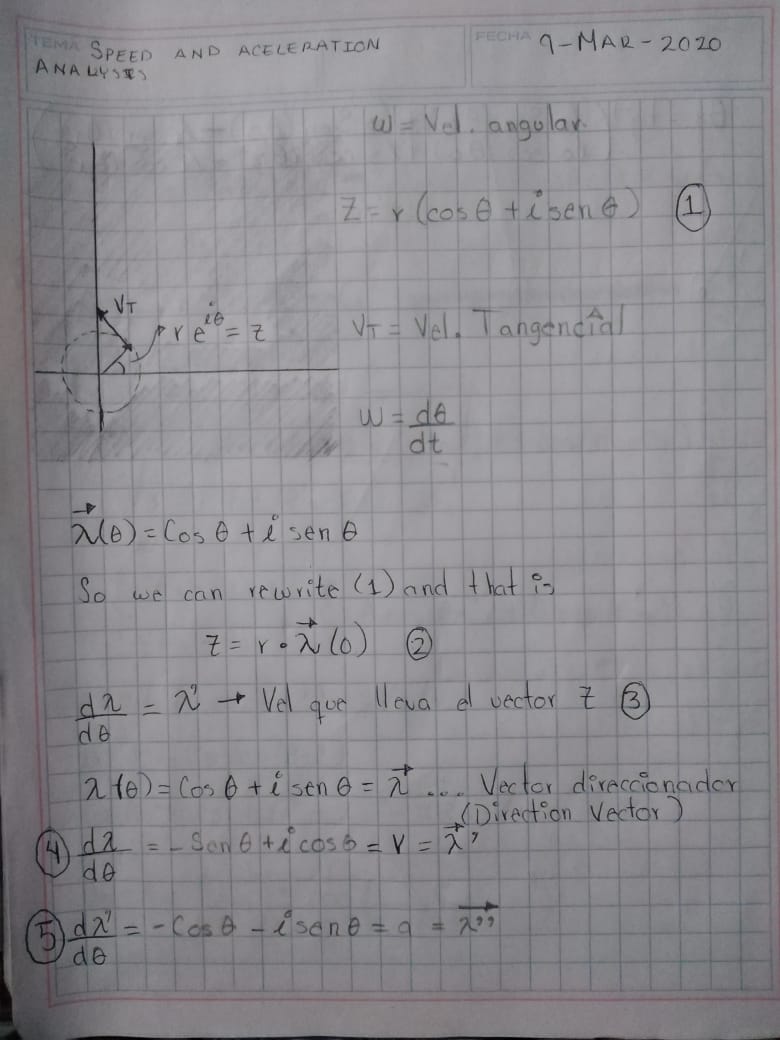 TEMA SPEED AND ACELERATION
ANALYSIS
FECHA 9-MAR-2020
ω = Vel. angular.
Z = r (cos θ + i sen θ) ①
V_T
r e^{iθ} = z
V_T = Vel. Tangencial
ω = dθ/dt
λ⃗(θ) = Cos θ + i sen θ
So we can rewrite (1) and that is
Z = r • λ⃗(θ) ②
dλ/dθ = λ' → Vel que lleva el vector Z ③
λ(θ) = Cos θ + i sen θ = λ⃗ ... Vector direccionador
(Direction Vector)
④ dλ/dθ = - Sen θ + i cos θ = V = λ⃗'
⑤ dλ'/dθ = - Cos θ - i sen θ = a = λ⃗''